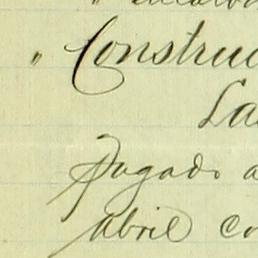 " Construc
La
Pagado a
Abril co